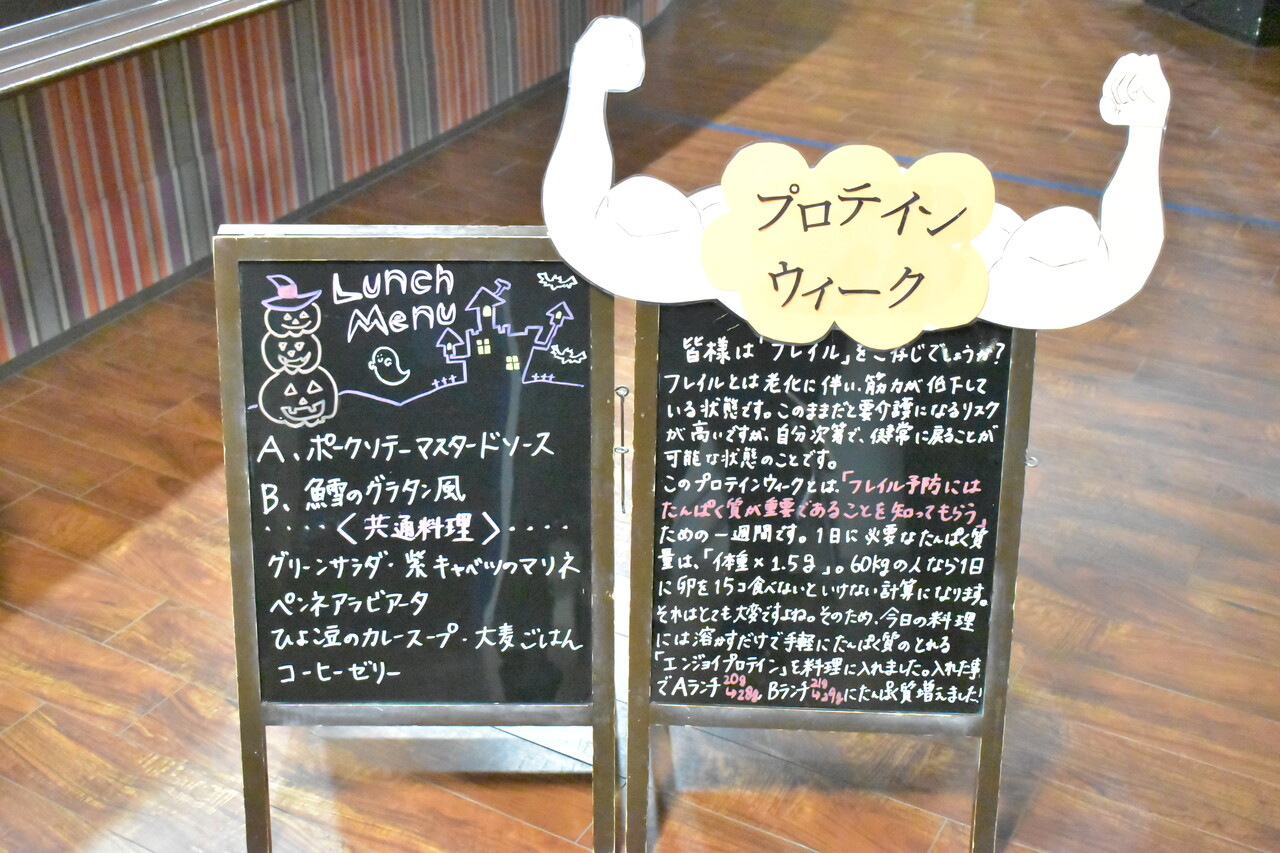 Lunch
Menu
A、ポークソテーマスタードソース
B、鱈のグラタン風
････〈共通料理〉････
グリーンサラダ・紫キャベツのマリネ
ペンネアラビアータ
ひよこ豆のカレースープ・大麦ごはん
コーヒーゼリー
プロテイン
ウィーク
皆様は「フレイル」をご存じでしょうか?
フレイルとは老化に伴い、筋力が低下して
いる状態です。このままだと要介護になるリスク
が高いですが、自分次第で、健常に戻ることが
可能な状態のことです。
このプロテインウィークとは、「フレイル予防には
たんぱく質が重要であることを知ってもらう」
ための一週間です。1日に必要なたんぱく質
量は、「体重×1.5g」。60kgの人なら1日
に卵を15コ食べないといけない計算になります。
それはとても大変ですよね。そのため、今日の料理
には溶かすだけで手軽にたんぱく質のとれる
「エンジョイプロテイン」を料理に入れました。入れた事
でAランチ20g↳28g Bランチ21g↳29gにたんぱく質増えました!